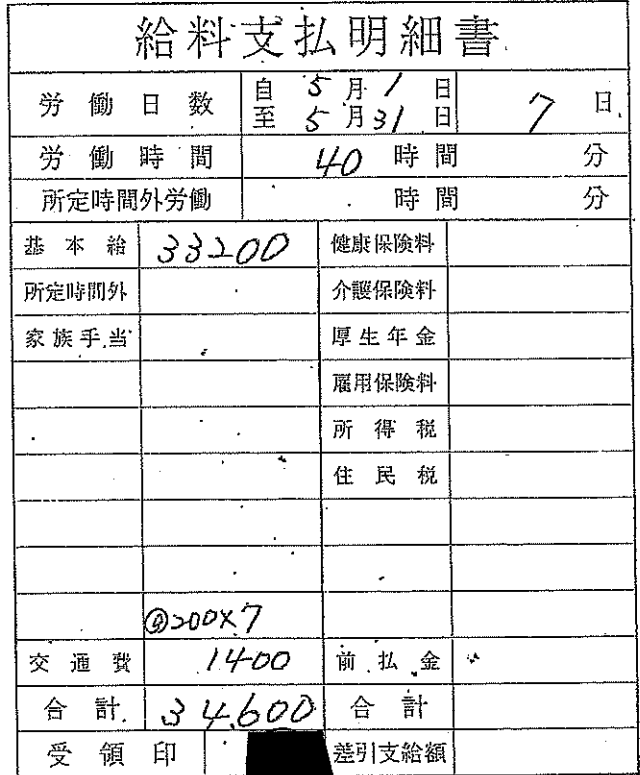 給料支払明細書
労働日数 自 5月1日 至 5月31日 7日
労働時間 40時間 分
所定時間外労働 時間 分
基本給 33200 健康保険料
所定時間外 介護保険料
家族手当 厚生年金
雇用保険料
所得税
住民税
@200×7
交通費 1400 前払金
合計 34,600 合計
受領印 差引支給額